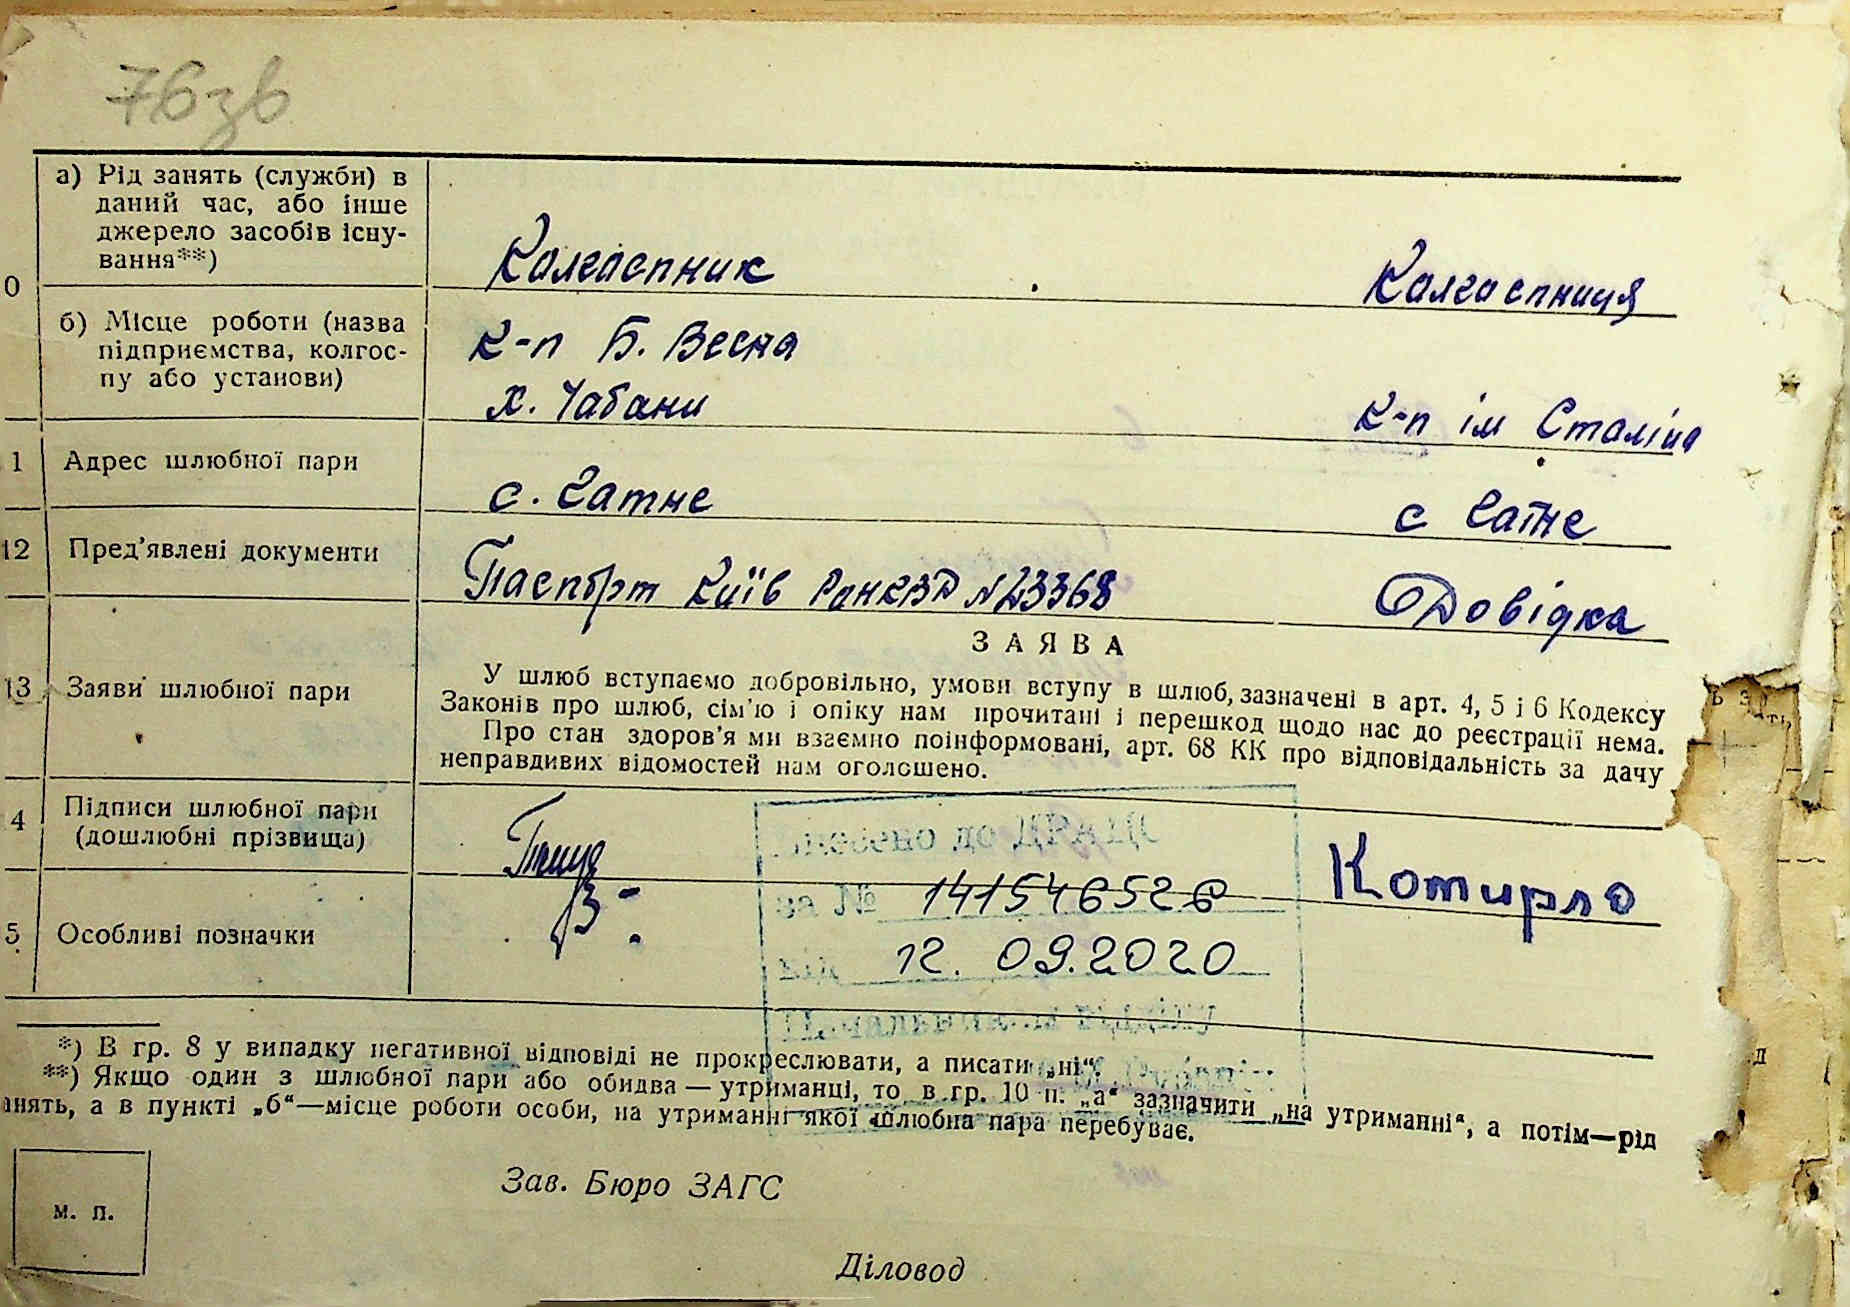 76зв
а) Рід занять (служби) в
даний час, або інше
джерело засобів існу-
вання**)
Колгоспник
Колгоспниця
0
б) Місце роботи (назва
підприємства, колгос-
пу або установи)
к-п Б. Весна
х. Чабани
к-п ім Сталіна
1 Адрес шлюбної пари
с. Гатне
с Гатне
12 Пред'явлені документи
Паспорт Київ РанКВД №23368
Довідка
13 Заяви шлюбної пари
ЗАЯВА
У шлюб вступаємо добровільно, умови вступу в шлюб, зазначені в арт. 4, 5 і 6 Кодексу
Законів про шлюб, сім'ю і опіку нам прочитані і перешкод щодо нас до реєстрації нема.
Про стан здоров'я ми взаємно поінформовані, арт. 68 КК про відповідальність за дачу
неправдивих відомостей нам оголошено.
4 Підписи шлюбної пари
(дошлюбні прізвища)
Котирло
внесено до ДРАЦС
за № 1415465260
від 12. 09.2020
5 Особливі позначки
відділу
*) В гр. 8 у випадку негативної відповіді не прокреслювати, а писати „ні“.
**) Якщо один з шлюбної пари або обидва — утриманці, то в гр. 10 п. „а“ зазначити „на утриманні“, а потім—рід
анять, а в пункті „б“—місце роботи особи, на утриманні якої шлюбна пара перебуває.
м. п.
Зав. Бюро ЗАГС
Діловод